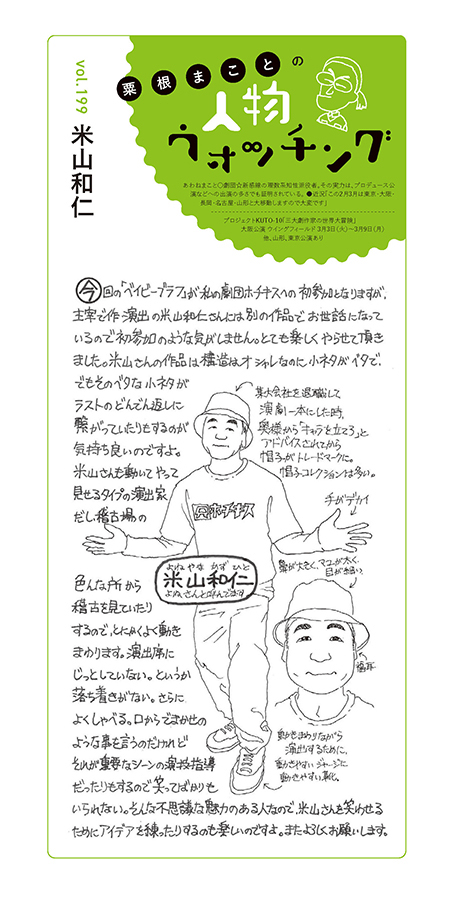 粟根まことの
人物
ウォッチング
vol.199
米山和仁
あわねまこと○劇団☆新感線の複数系知性派役者。その実力は、プロデュース公
演などへの出演の多さでも証明されている。●近況「この2月3月は東京・大阪・
長岡・名古屋・山形と大移動しますので大変です」
プロジェクトKUTO-10「三大劇作家の世界大冒険」
大阪公演 ウイングフィールド 3月3日(火)〜3月9日(月)
他、山形、東京公演あり
今回の「ベイビープラフ」が私の劇団ホチキスへの初参加となりますが、
主宰で作・演出の米山和仁さんには別の作品でお世話になって
いるので初参加のような気がしません。とても楽しくやらせて頂き
ました。米山さんの作品は構造はオシャレなのに小ネタがベタで、
でもそのベタな小ネタが
ラストのどんでん返しに
繋がっていたりもするのが
気持ち良いのですよ。
米山さんも動いてやって
見せるタイプの演出家
だし、稽古場の
色んな所から
稽古を見ていたり
するので、とにかくよく動き
まわります。演出席に
じっとしていない。というか
落ち着きがない。さらに
よくしゃべる。口からでまかせの
ような事を言うのだけれど
それが重要なシーンの演技指導
だったりもするので笑ってばかりも
いられない。そんな不思議な魅力のある人なので、米山さんを笑わせる
ためにアイデアを練ったりするのも楽しいのですよ。またよろしくお願いします。
某大会社を退職して
演劇一本にした時、
奥様から「キャラを立てろ」と
アドバイスされてから
帽子がトレードマークに。
帽子コレクションは多い。
手がデカイ
鼻が大きく、マユが太く、
目が細い
福耳
ホチキス
よねやま かずひと
米山和仁
よねさんと呼んでます
動きまわりながら
演出するために、
動きやすいジャージに
動きやすい靴。